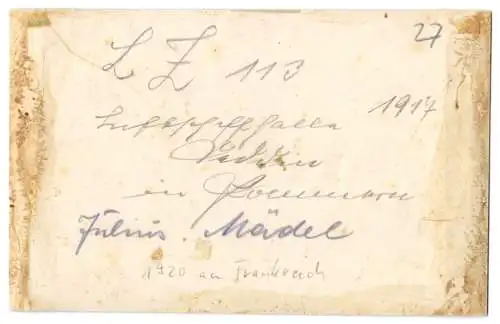 27
LZ 113
1917
Luftschiffhalle
Seddin
in Pommern
Julius. Mädel
1920 an Frankreich